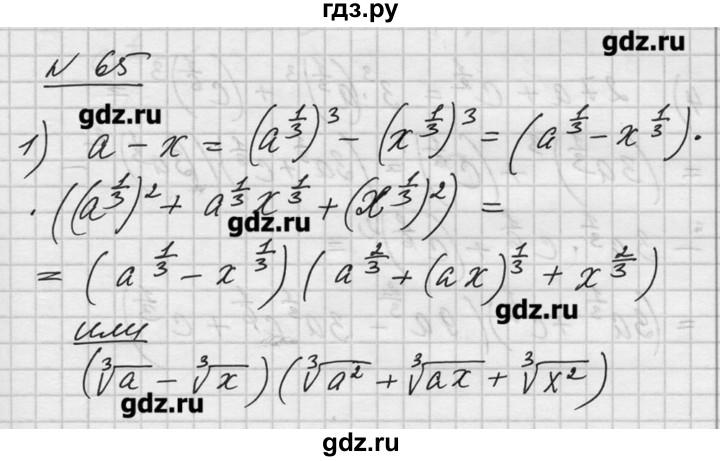 гдз.ру
gdz.ru
№ 65
gdz.ru
1) a − x = (a^{1/3})^3 − (x^{1/3})^3 = (a^{1/3} − x^{1/3}) ·
· ((a^{1/3})^2 + a^{1/3} x^{1/3} + (x^{1/3})^2) =
gdz.ru
= (a^{1/3} − x^{1/3}) (a^{2/3} + (ax)^{1/3} + x^{2/3})
gdz.ru
или
(∛a − ∛x) (∛a² + ∛ax + ∛x²)
gdz.ru
gdz.ru